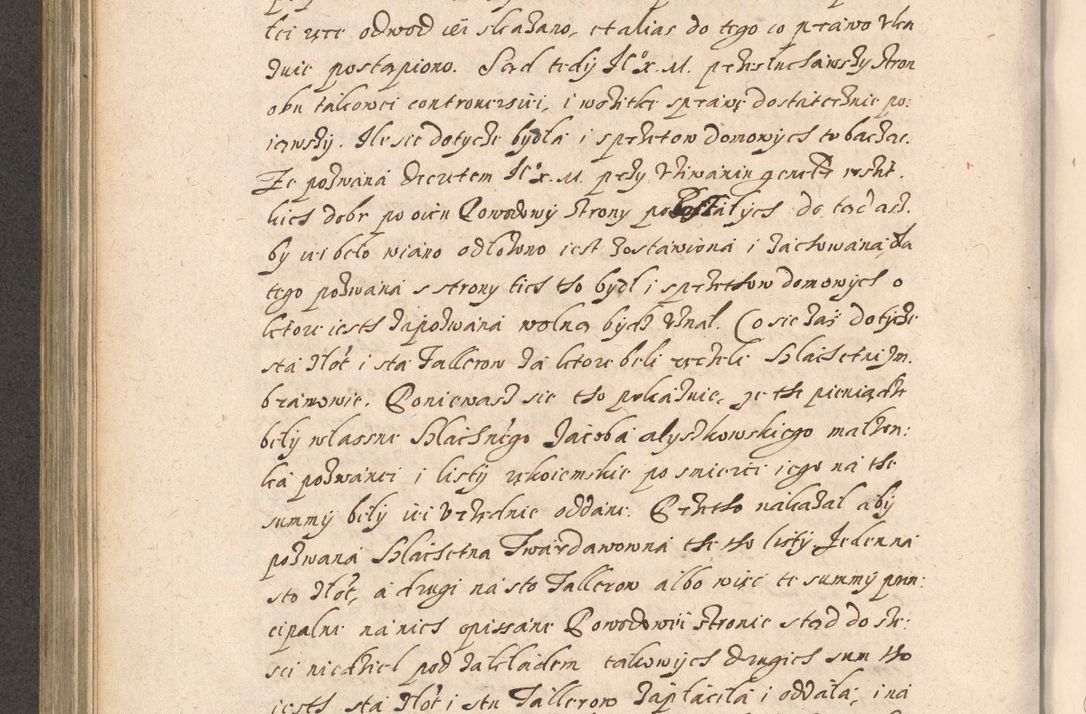 kci ręce odwod iei skazano, et alias do tego co prawo Vka
zuie postąpiono. Sąd tedÿ JE° X. M. przesłuchawszÿ stron
obu takowei controuersiei, i wożitkę sprawę dostatecznie po:
iąwszÿ. Ile sie dotÿcze bÿdła i sprzętow domowÿch to bacząc.
Że pozwana Decretem JE° X. M. przÿ Vżiwaniu wszit:
kich dobr po oicu Powodowÿ strony pozostałÿch do tąd asz.
bÿ iei beło wiano odłożono iest zostawiona i zachowana, Za
tego pozwana s strony tich tho bÿdł i sprzethow domowÿch o
ktore iesth zapozwana wolną bÿdz Vznał. Co sie zaś dotÿcze
sta złot i sta Tallerow za ktore beli ręczÿli Slachetni Jm.
bramowie. Poniewasz sie tho pokazuie, że the pieniądze
bełÿ własne Slachnego Jacoba ałyszkowskiego małżon:
ka pozwanei i listÿ rękoiemskie po smierci iego na the
summÿ bełÿ iei Vrzędnie oddane. Przetho nakazał abÿ
pozwana Slachetna Twardawowna the tho listÿ Jeden na
sto złot, a drugi na sto Tallerow albo więc te summÿ prin:
cipalne na nich opissane Powodowei stronie stąd do sze:
sci niedziel pod zakładem takowÿch drugich sum tho
iesth sta złot i stu Tallerow zapłaciła i oddała, i na